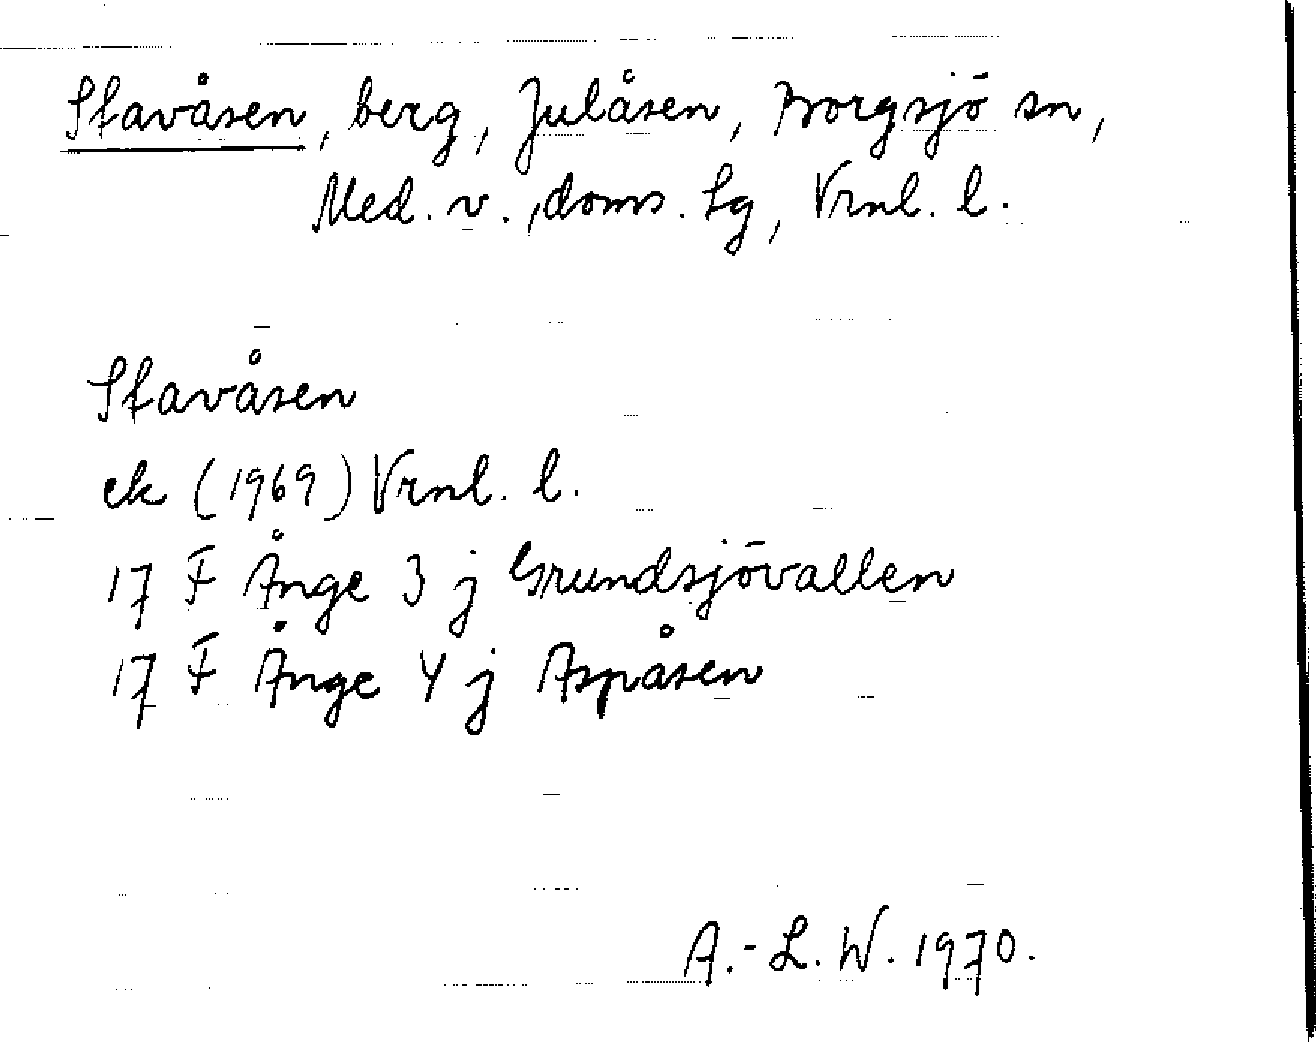 Stavåsen, berg, Julåsen, Borgsjö sn,
Med. v., doms. lg, Vrnl. l.
Stavåsen
ek (1969) Vrnl. l.
17 F Ånge 3 j Grundsjövallen
17 F Ånge 4 j Aspåsen
A.-L. W. 1970.